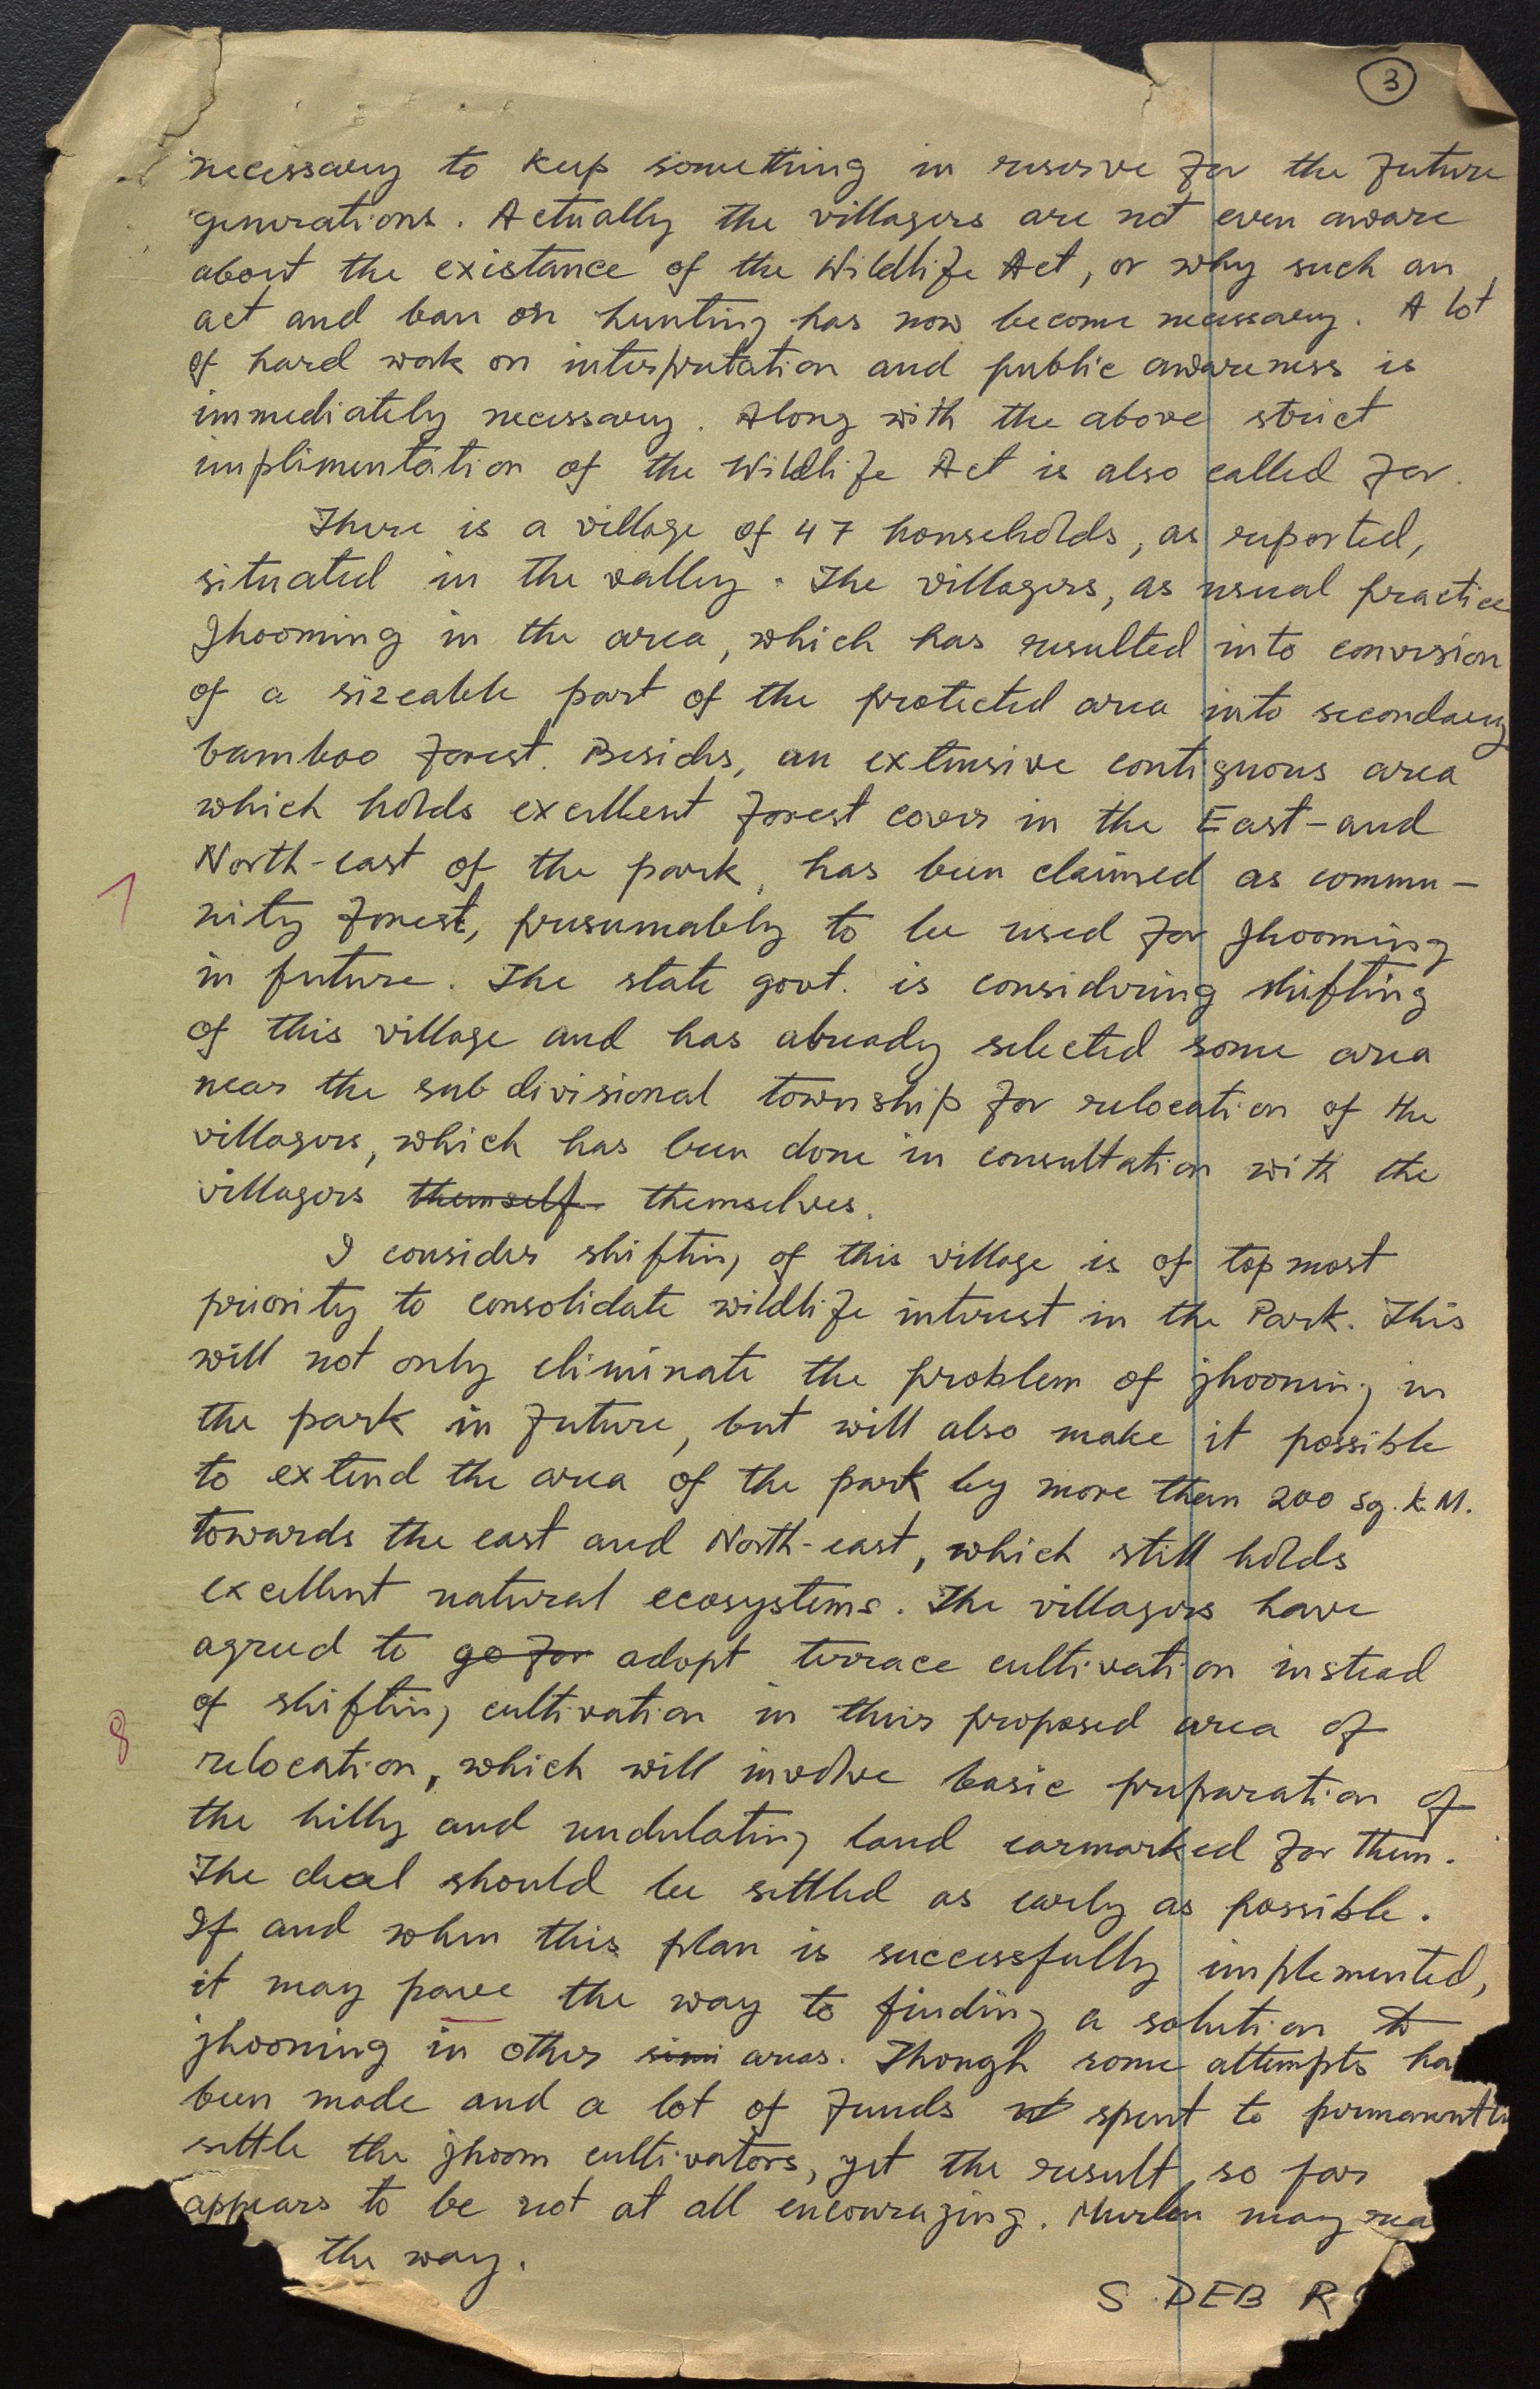 3
necessary to keep something in reserve for the future
generations. Actually the villagers are not even aware
about the existance of the Wildlife Act, or why such an
act and ban on hunting has now become necessary. A lot
of hard work on interpretation and public awareness is
immediately necessary. Along with the above strict
implimentation of the Wildlife Act is also called for.
There is a village of 47 households, as reported,
situated in the valley. The villagers, as usual practice
Jhooming in the area, which has resulted into conversion
of a sizeable part of the protected area into secondary
bamboo forest. Besides, an extensive contiguous area
which holds excellent forest cover in the East-and
North-east of the park, has been claimed as commu-
7
nity forest, presumably to be used for Jhooming
in future. The state govt. is considering shifting
of this village and has already selected some area
near the sub divisional township for relocation of the
villagers, which has been done in consultation with the
villagers themself themselves.
I consider shifting of this village is of topmost
priority to consolidate wildlife interest in the Park. This
will not only eliminate the problem of jhooming in
the park in future, but will also make it possible
to extend the area of the park by more than 200 sq. k.M.
towards the east and North-east, which still holds
excellent natural ecosystems. The villagers have
agreed to go for adopt terrace cultivation instead
of shifting cultivation in their proposed area of
8
relocation, which will involve basic preparation of
the hilly and undulating land earmarked for them.
The deal should be settled as early as possible.
If and when this plan is successfully implemented,
it may pave the way to finding a solution to
jhooming in other simi areas. Though some attempts ha
been made and a lot of funds spent to permanently
settle the jhoom cultivators, yet the result so far
appears to be not at all encouraging. Murlen may
the way.
S. DEB R